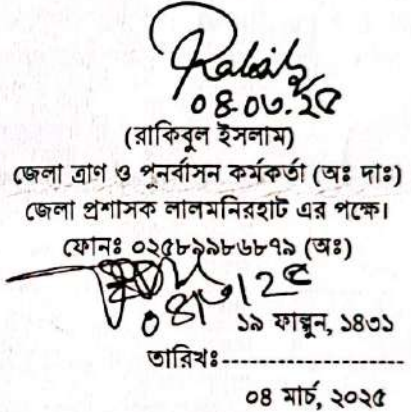 ০৪.০৩.২৫
(রাকিবুল ইসলাম)
জেলা ত্রাণ ও পুনর্বাসন কর্মকর্তা (অঃ দাঃ)
জেলা প্রশাসক লালমনিরহাট এর পক্ষে।
ফোনঃ ০২৫৮৯৯৮৬৮৭৯ (অঃ)
১৯ ফাল্গুন, ১৪৩১
তারিখঃ--------------------
০৪ মার্চ, ২০২৫